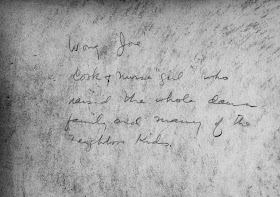 Wong Joe
Cook & Nurse "girl" who
raised the whole damn
family and many of the
neighbors kids.